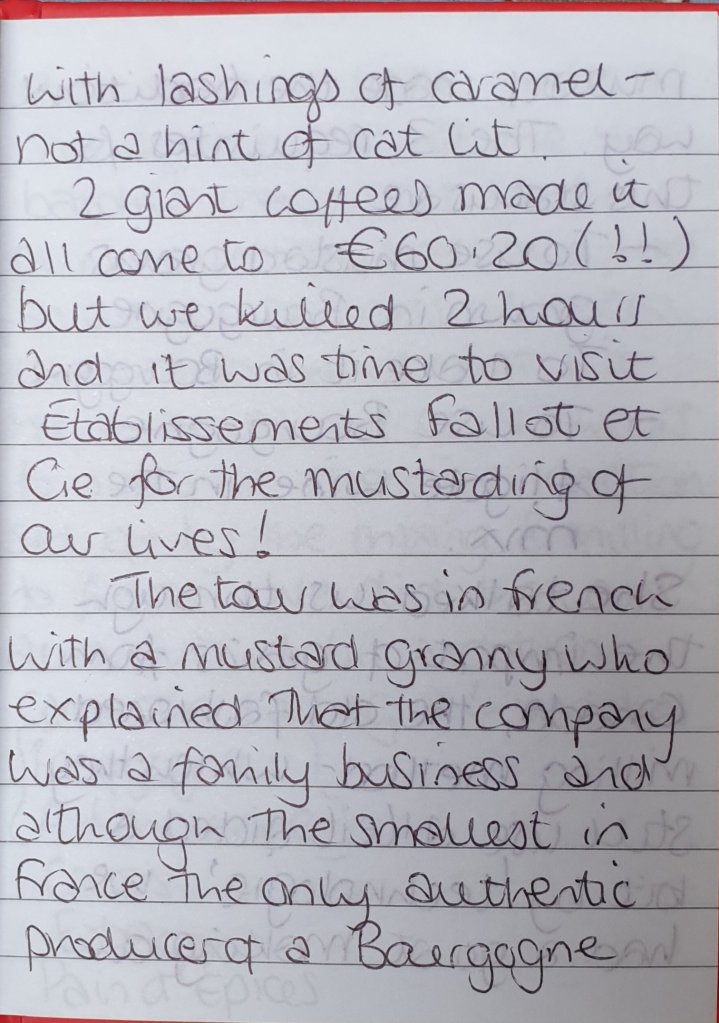 with lashings of caramel -
not a hint of cat lit.
2 giant coffees made it
all come to €60.20(!!)
but we killed 2 hours
and it was time to visit
Etablissements Fallot et
Cie for the mustarding of
our lives!
The tour was in french
with a mustard granny who
explained that the company
was a family business and
although the smallest in
france the only authentic
producer of a Bourgogne